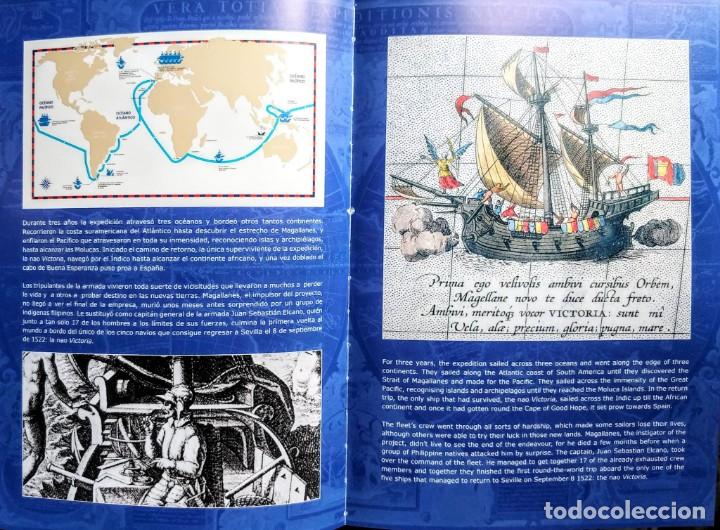 VERA TOTI
DITIONIS
OCÉANO
PACÍFICO
OCÉANO
ATLÁNTICO
OCÉANO
PACÍFICO
Durante tres años la expedición atravesó tres océanos y bordeó otros tantos continentes.
Recorrieron la costa suramericana del Atlántico hasta descubrir el estrecho de Magallanes, y
enfilaron el Pacífico que atravesaron en toda su inmensidad, reconociendo islas y archipiélagos,
hasta alcanzar las Molucas. Iniciado el camino de retorno, la única superviviente de la expedición,
la nao Victoria, navegó por el Índico hasta alcanzar el continente africano, y una vez doblado el
cabo de Buena Esperanza puso proa a España.
Los tripulantes de la armada vivieron toda suerte de vicisitudes que llevaron a muchos a perder
la vida y a otros a probar destino en las nuevas tierras. Magallanes, el impulsor del proyecto,
no llegó a ver el final de la empresa, murió unos meses antes sorprendido por un grupo de
indígenas filipinos. Le sustituyó como capitán general de la armada Juan Sebastián Elcano, quién
junto a tan solo 17 de los hombres a los límites de sus fuerzas, culmina la primera vuelta al
mundo a bordo del único de los cinco navíos que consigue regresar a Sevilla el 8 de septiembre
de 1522: la nao Victoria.
Prima ego velivolis ambivi cursibus Orbem,
Magellane novo te duce ducta freto.
Ambivi, meritoq₃ vocor VICTORIA: sunt mi
Vela, alæ; precium, gloria; pugna, mare.
For three years, the expedition sailed across three oceans and went along the edge of three
continents. They sailed along the Atlantic coast of South America until they discovered the
Strait of Magallanes and made for the Pacific. They sailed across the immensity of the Great
Pacific, recognising islands and archipelagos until they reached the Moluca Islands. In the return
trip, the only ship that had survived, the nao Victoria, sailed across the Indic up till the African
continent and once it had gotten round the Cape of Good Hope, it set prow towards Spain.
The fleet's crew went through all sorts of hardship, which made some sailors lose their lives,
although others were able to try their luck in those new lands. Magallanes, the instigator of the
project, didn't live to see the end of the endeavour, for he died a few months before when a
group of Philippine natives attacked him by surprise. The captain, Juan Sebastian Elcano, took
over the command of the fleet. He managed to get together 17 of the already exhausted crew
members and together they finished the first round-the-world trip aboard the only one of the
five ships that managed to return to Seville on September 8 1522: the nao Victoria.
todocoleccion